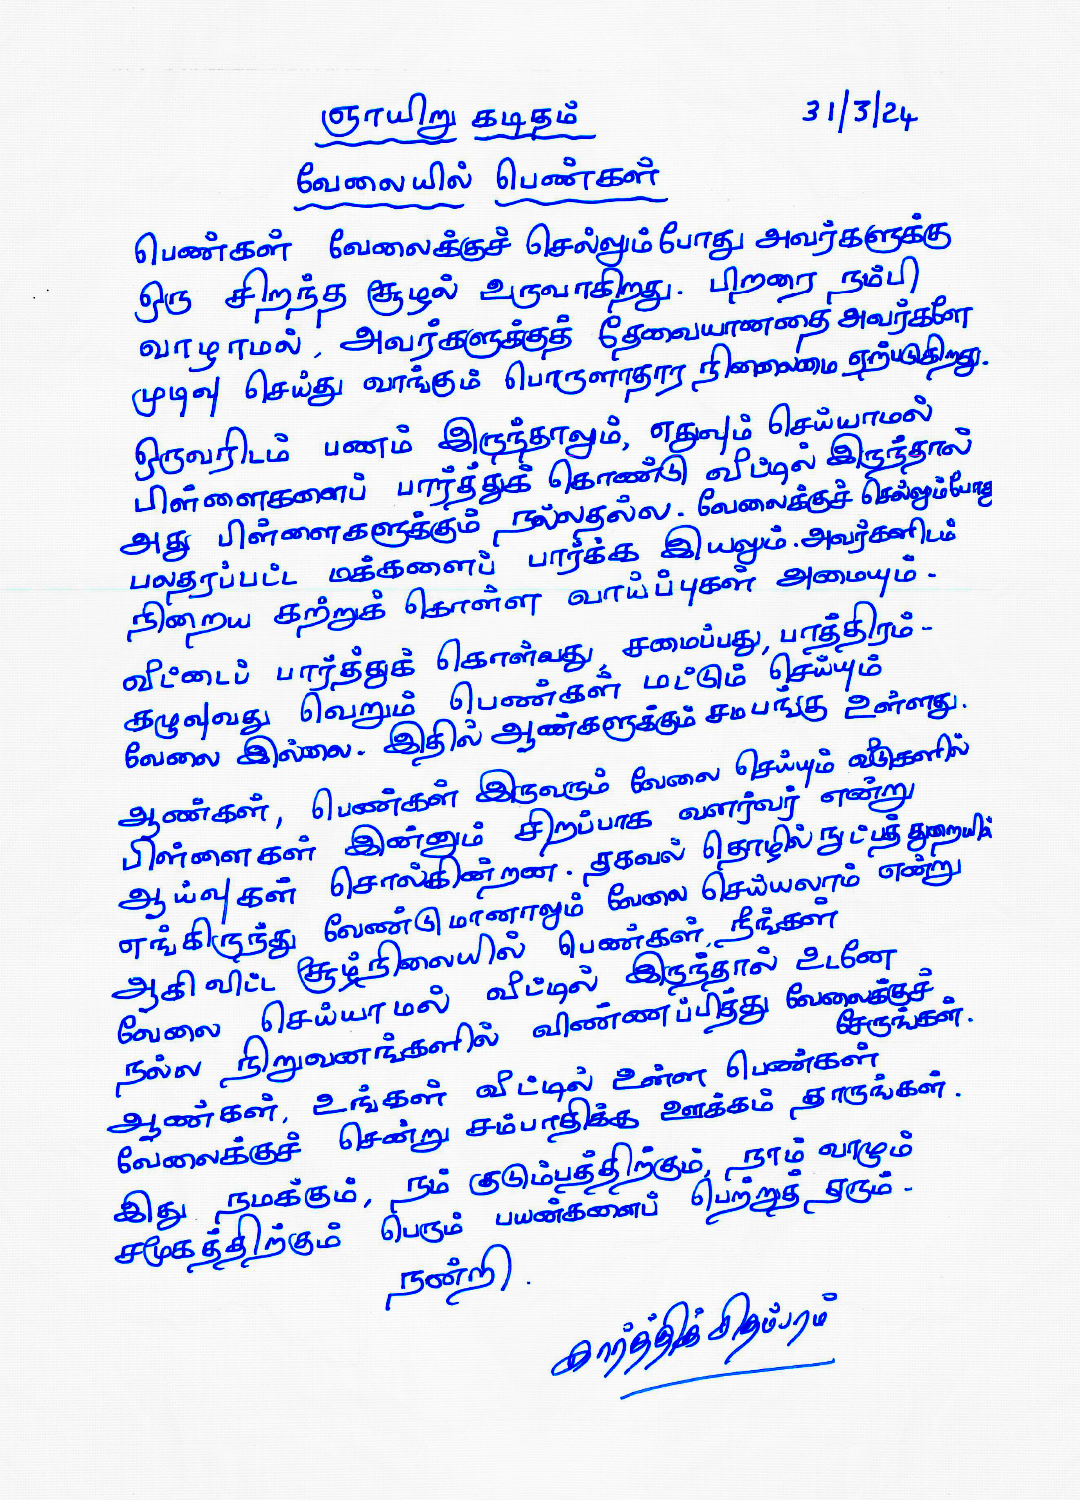 ஞாயிறு கடிதம் 31/3/24
வேலையில் பெண்கள்
பெண்கள் வேலைக்குச் செல்லும்போது அவர்களுக்கு
ஒரு சிறந்த சூழல் உருவாகிறது. பிறரை நம்பி
வாழாமல், அவர்களுக்குத் தேவையானதை அவர்களே
முடிவு செய்து வாங்கும் பொருளாதார நிலைமை ஏற்படுகிறது.
ஒருவரிடம் பணம் இருந்தாலும், எதுவும் செய்யாமல்
பிள்ளைகளைப் பார்த்துக் கொண்டு வீட்டில் இருந்தால்
அது பிள்ளைகளுக்கும் நல்லதல்ல. வேலைக்குச் செல்லும்போது
பலதரப்பட்ட மக்களைப் பார்க்க இயலும். அவர்களிடம்
நிறைய கற்றுக் கொள்ள வாய்ப்புகள் அமையும்.
வீட்டைப் பார்த்துக் கொள்வது, சமைப்பது, பாத்திரம்
கழுவுவது வெறும் பெண்கள் மட்டும் செய்யும்
வேலை இல்லை. இதில் ஆண்களுக்கும் சம பங்கு உள்ளது.
ஆண்கள், பெண்கள் இருவரும் வேலை செய்யும் வீடுகளில்
பிள்ளைகள் இன்னும் சிறப்பாக வளர்வர் என்று
ஆய்வுகள் சொல்கின்றன. தகவல் தொழில் நுட்பத் துறையில்
எங்கிருந்து வேண்டுமானாலும் வேலை செய்யலாம் என்று
ஆகி விட்ட சூழ்நிலையில் பெண்கள், நீங்கள்
வேலை செய்யாமல் வீட்டில் இருந்தால் உடனே
நல்ல நிறுவனங்களில் விண்ணப்பித்து வேலைக்குச்
சேருங்கள்.
ஆண்கள், உங்கள் வீட்டில் உள்ள பெண்கள்
வேலைக்குச் சென்று சம்பாதிக்க ஊக்கம் தாருங்கள்.
இது நமக்கும், நம் குடும்பத்திற்கும், நாம் வாழும்
சமூகத்திற்கும் பெரும் பயன்களைப் பெற்றுத் தரும்.
நன்றி.
கார்த்திக் சிதம்பரம்